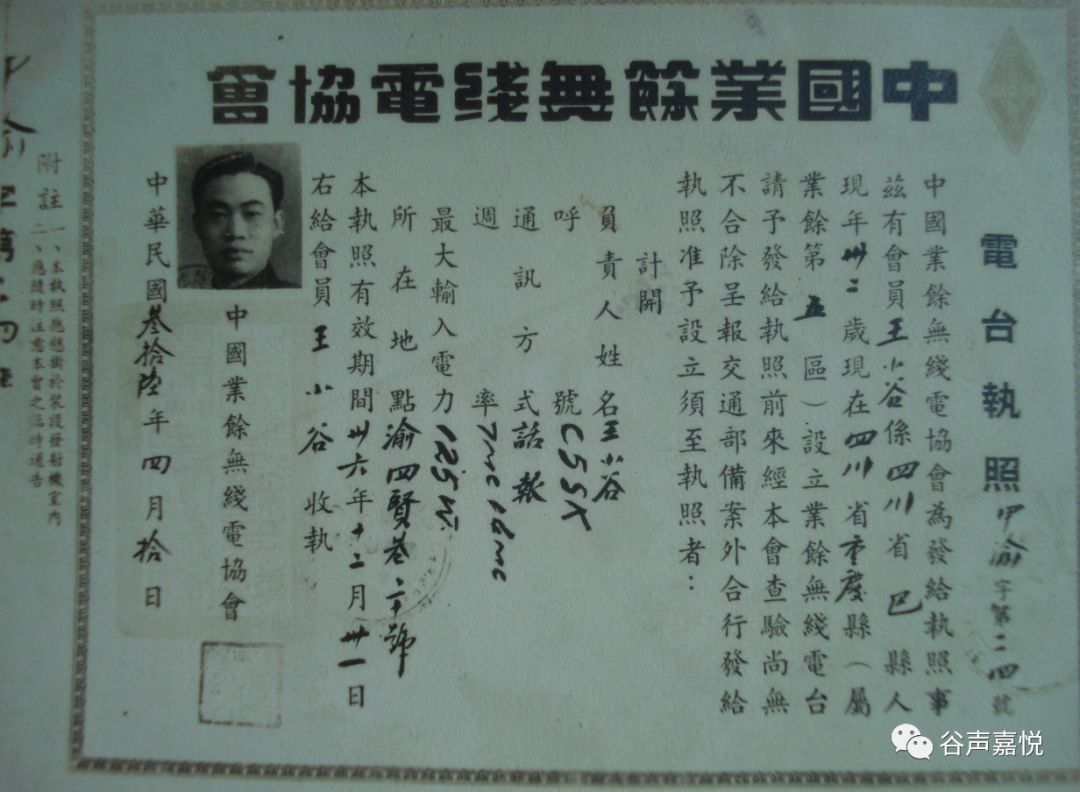 中國業餘無綫電協會
電台執照甲渝字第二四號
中國業餘無綫電協會為發給執照事
茲有會員王小谷係四川省巴縣人
現年卅二歲現在四川省重慶縣（屬
業餘第五區）設立業餘無綫電台
請予發給執照前來經本會查驗尚無
不合除呈報交通部備案外合行發給
執照准予設立須至執照者：
計開
負責人姓名王小谷
呼號C5SX
通訊方式話 報
週率7mc 14mc
最大輸入電力125W
所在地點渝四賢巷二十號
本執照有效期間卅六年十二月卅一日
右給會員王小谷收執
中國業餘無綫電協會
中華民國叁拾陸年四月拾日
附註
一、本執照應懸掛於裝設發射機室內
二、應隨時注意本會之臨時通告
谷声嘉悦